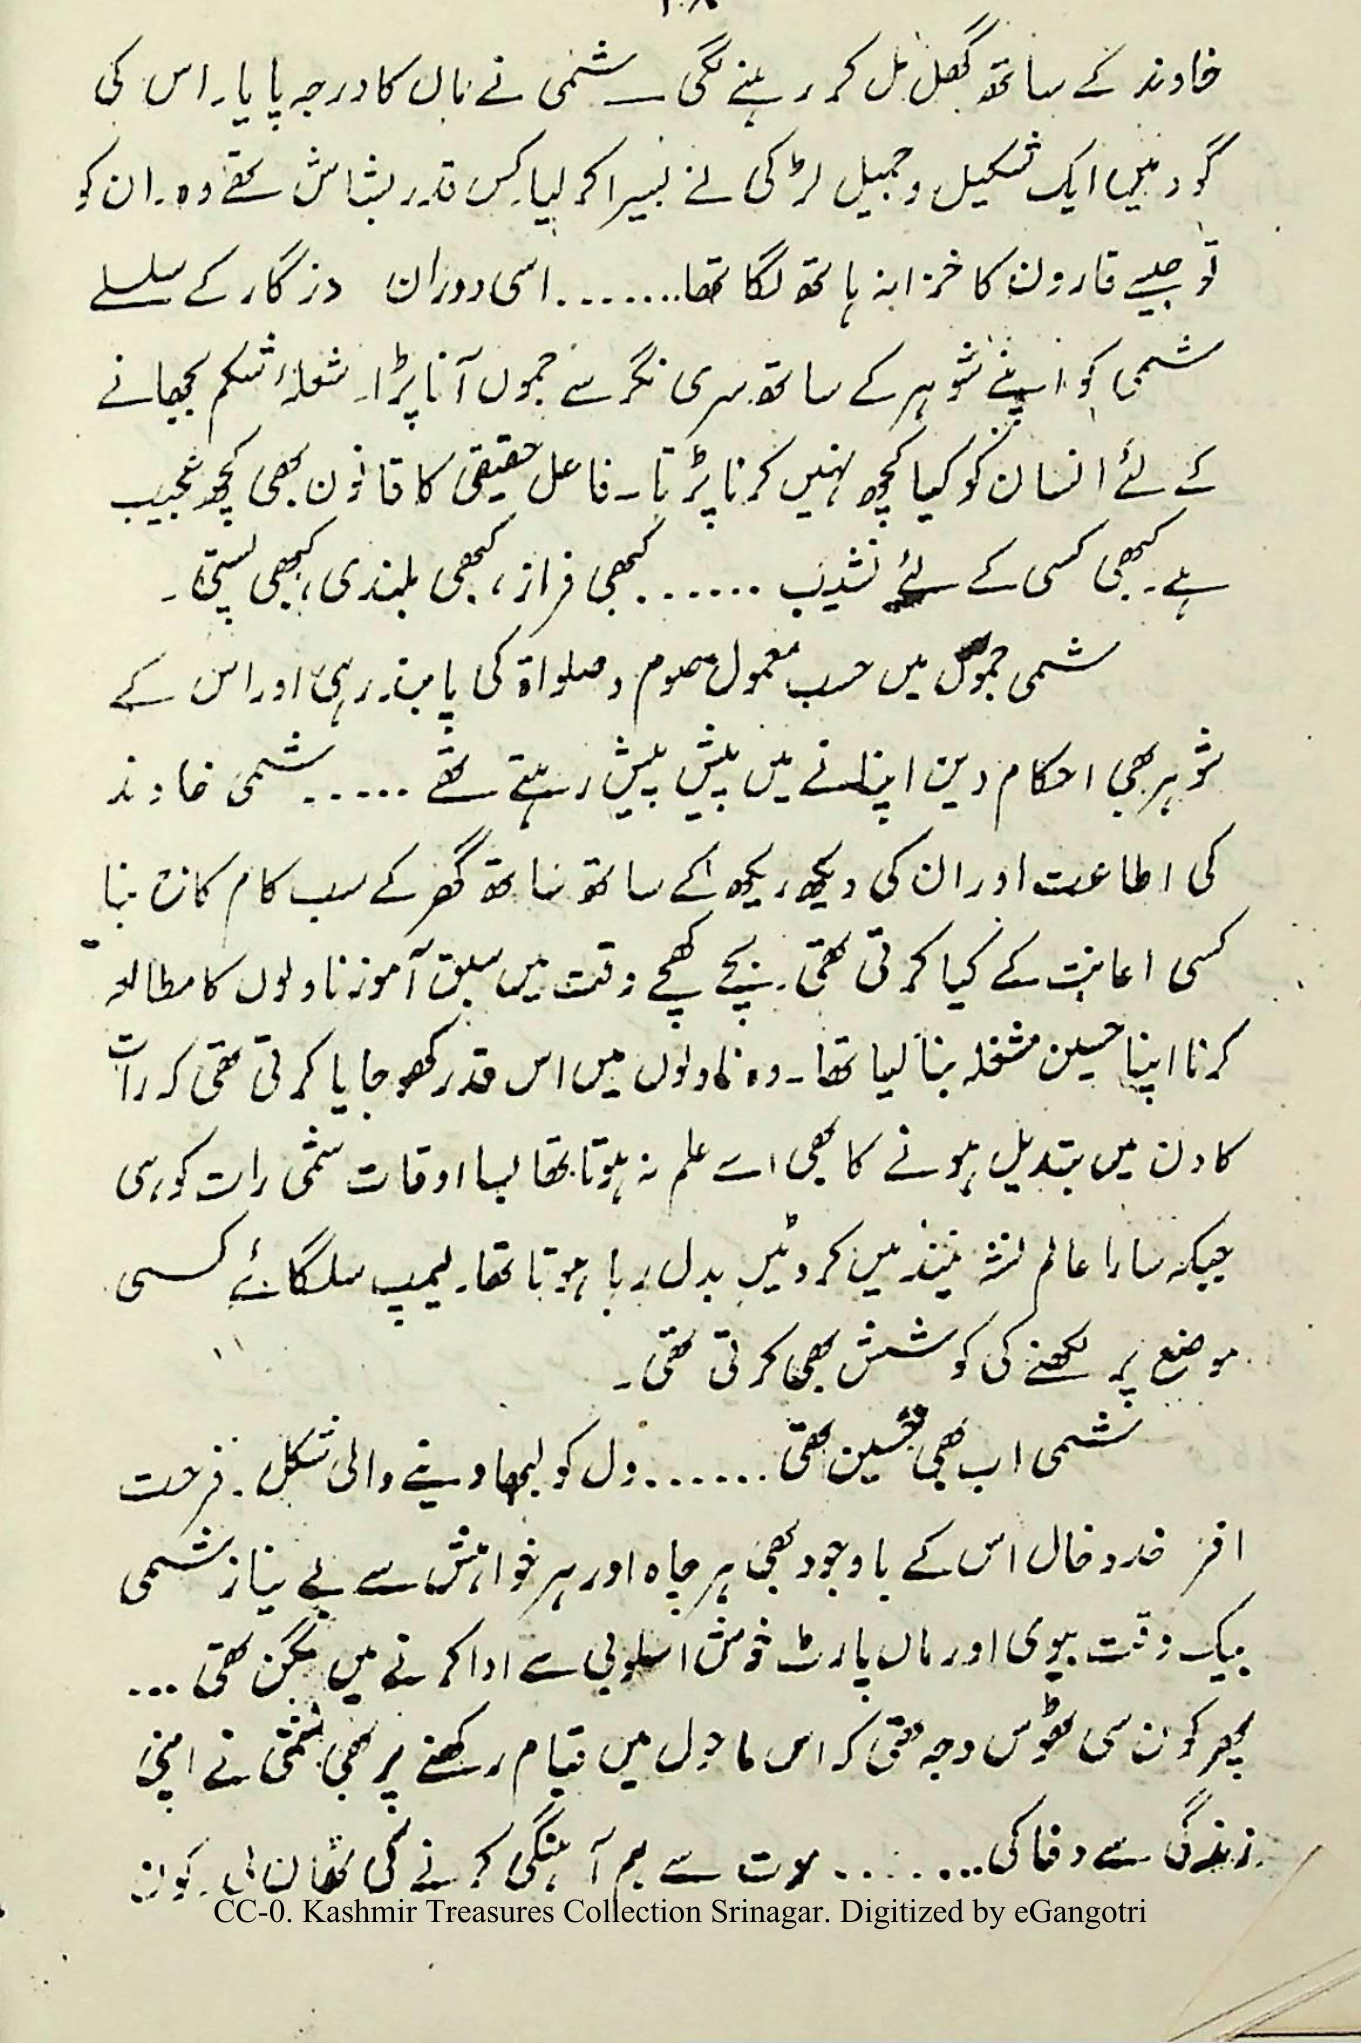 ۲۰۸
خاوند کے ساتھ گھل مل کر رہنے لگی ــ شمی نے ماں کا درجہ پایا۔ اس کی
گود میں ایک شکیل و جمیل لڑکی نے بسیرا کر لیا۔ کس قدر بشاش تھے وہ۔ ان کو
تو جیسے قارون کا خزانہ ہاتھ لگا تھا....... اسی دوران دزگار کے سلسلے
شمی کو اپنے شوہر کے ساتھ سری نگر سے جموں آنا پڑا۔ شعلۂ شکم بجھانے
کے لئے انسان کو کیا کچھ نہیں کرنا پڑتا۔ فاعل حقیقی کا قانون بھی کچھ عجیب
ہے۔ کبھی کسی کے لئے نشیب ...... کبھی فراز، کبھی بلندی، کبھی پستی۔
شمی جموں میں حسب معمول صوم و صلواۃ کی پابند رہی اور اس کے
شوہر بھی احکام دین اپنانے میں پیش پیش رہتے تھے ..... شمی خاوند
کی اطاعت اور ان کی دیکھ ریکھ کے ساتھ ساتھ گھر کے سب کام کاج بنا
کسی اعانت کے کیا کرتی تھی۔ بچے کھچے وقت میں سبق آموز ناولوں کا مطالعہ
کرنا اپنا حسین مشغلہ بنا لیا تھا۔ وہ ناولوں میں اس قدر کھو جایا کرتی تھی کہ رات
کا دن میں تبدیل ہونے کا بھی اسے علم نہ ہوتا تھا بسا اوقات شمی رات کو ہی
جبکہ سارا عالم نشۂ نیند میں کروٹیں بدل رہا ہوتا تھا۔ لیمپ سلگائے کسی
موضع پر لکھنے کی کوشش بھی کرتی تھی۔
شمی اب بھی حسین تھی ...... دل کو لبھا دینے والی شکل۔ فرحت
افز خدوخال اس کے باوجود بھی ہر چاہ اور ہر خواہش سے بے نیاز شمی
بیک وقت بیوی اور ماں پارٹ خوش اسلوبی سے ادا کرنے میں مگن تھی ...
پھر کون سی ٹھوس وجہ تھی کہ اس ماحول میں قیام رکھنے پر بھی شمی نے اپنی
زندگی سے دفا کی........ موت سے ہم آہنگی کرنے کی ٹھان لی۔ کون
CC-0. Kashmir Treasures Collection Srinagar. Digitized by eGangotri